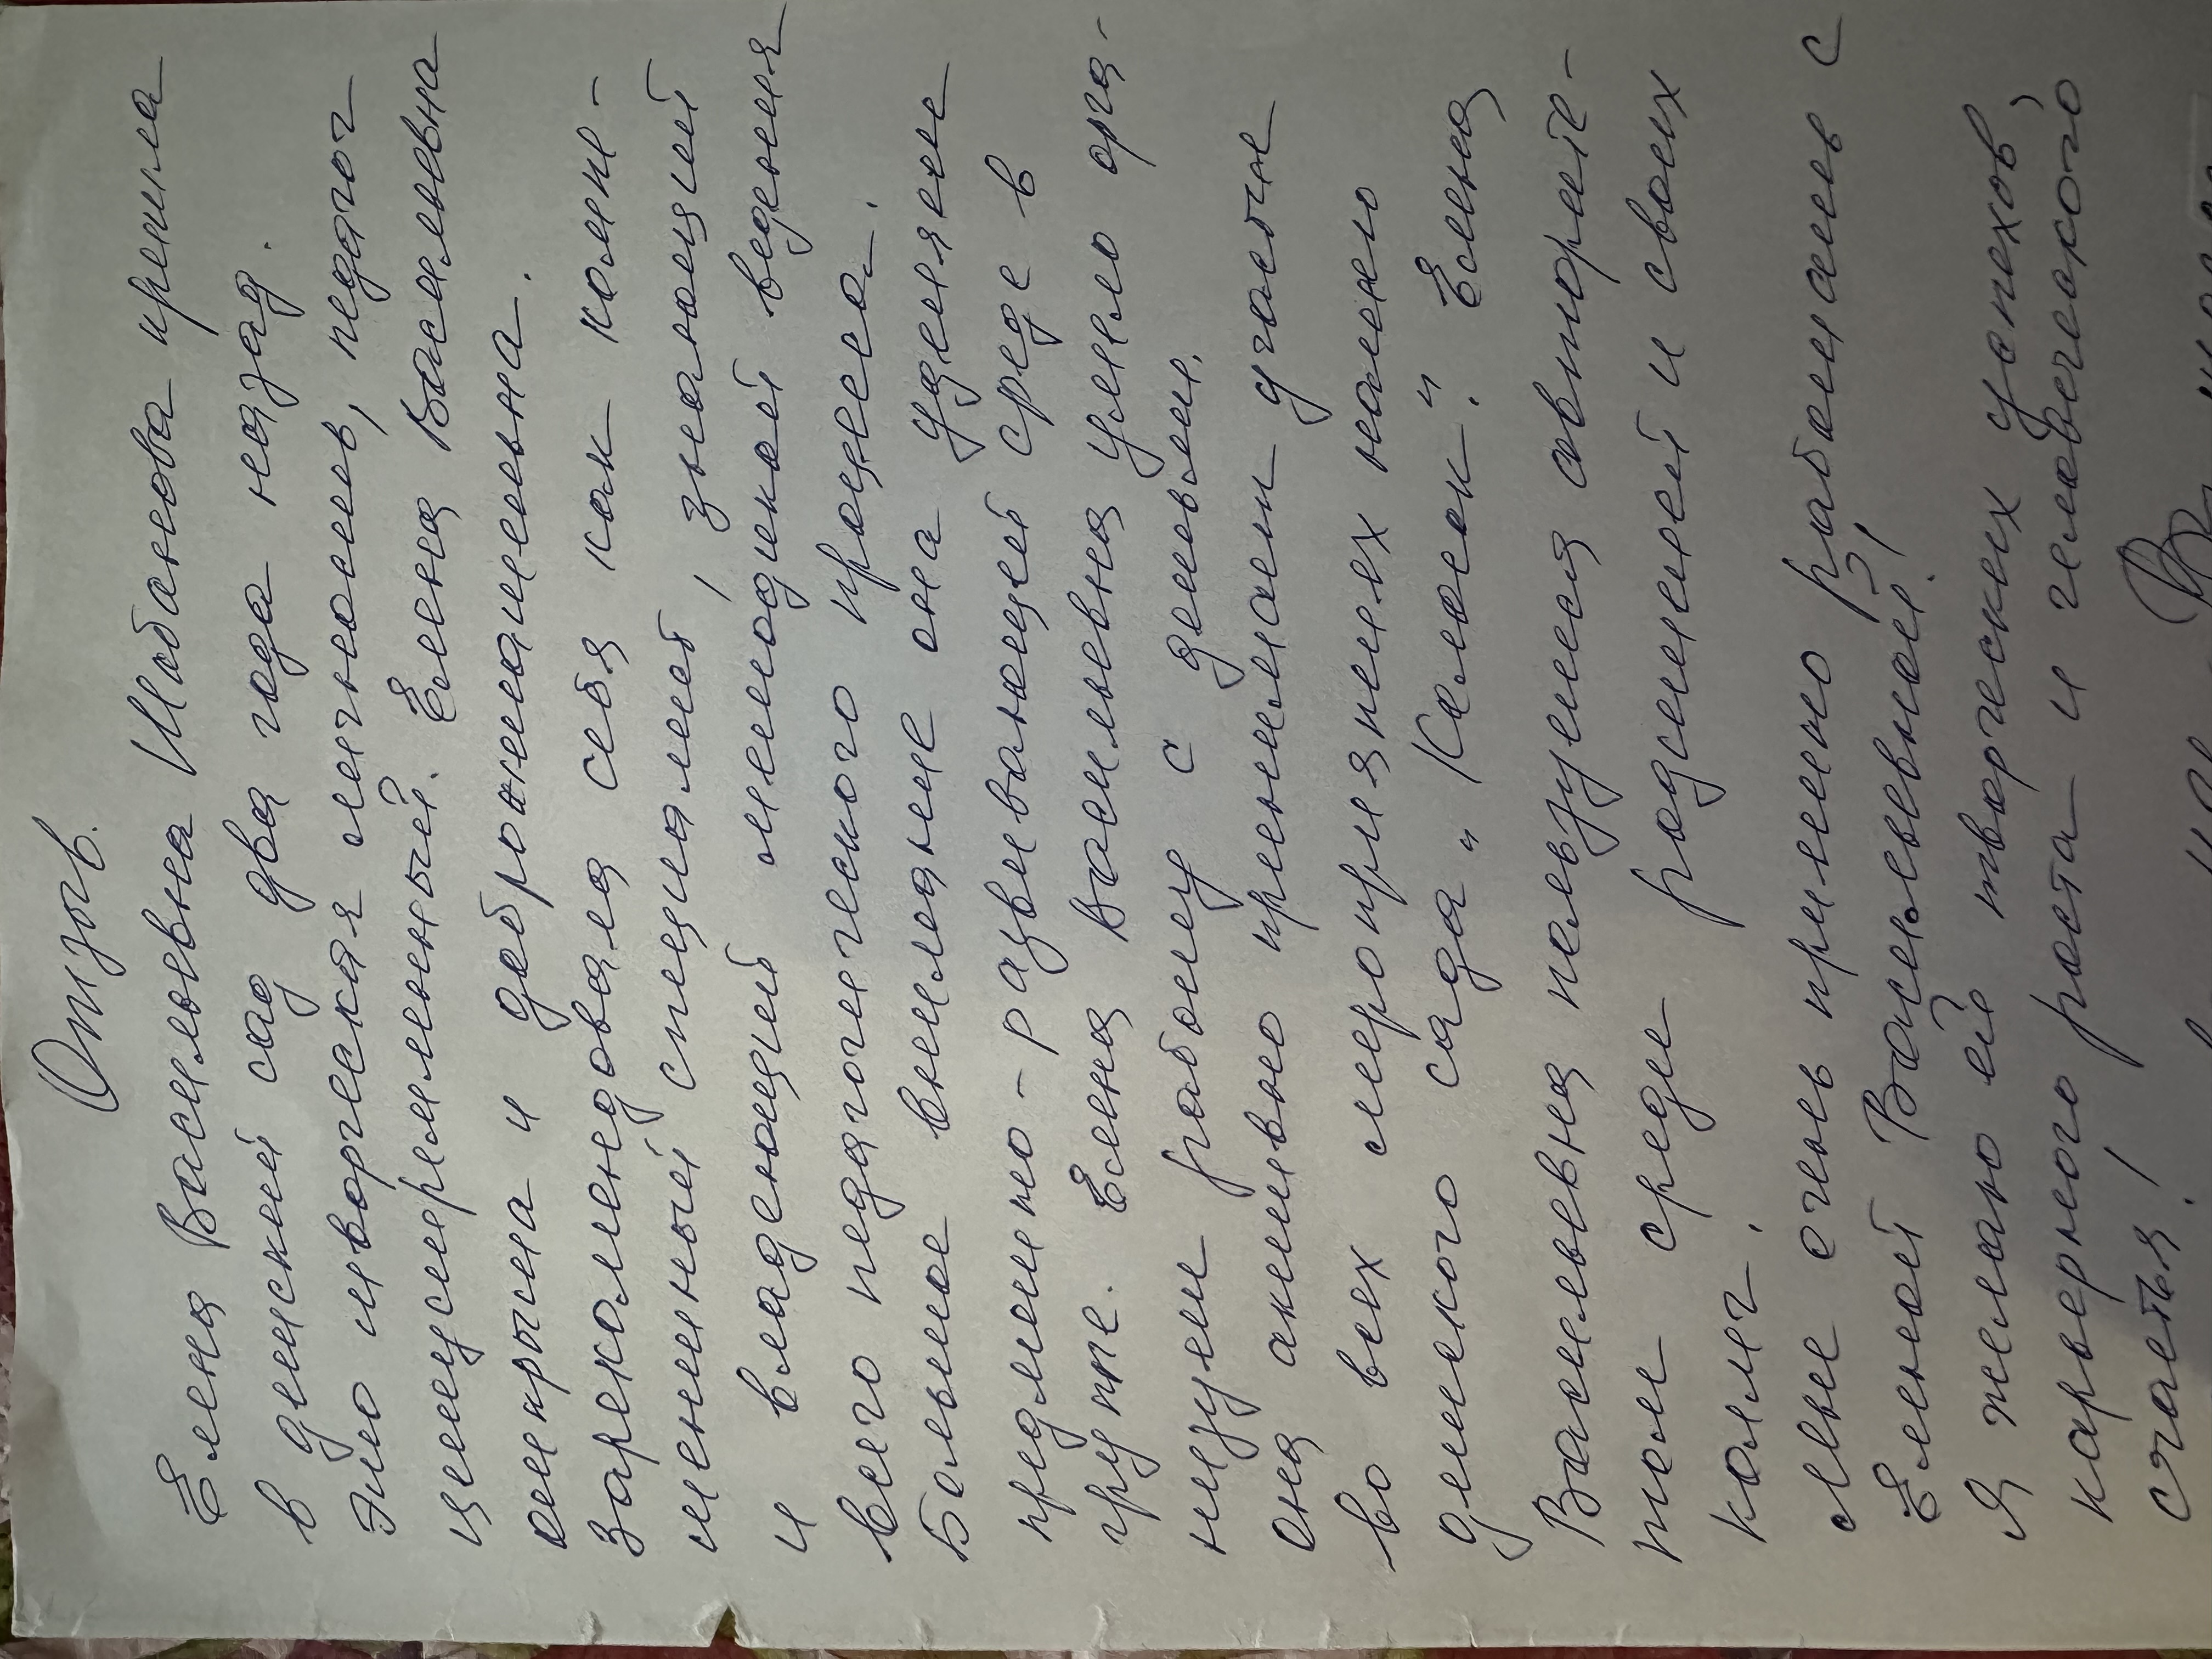 Отзыв.
Елена Васильевна Шабанова пришла
в детский сад два года назад.
Это творческая личность, педагог
целеустремленный. Елена Васильевна
открыта и доброжелательна.
Зарекомендовала себя как компе-
тентный специалист, знающий
и владеющий методикой ведения
всего педагогического процесса.
Большое внимание она уделяет
предметно-развивающей среде в
группе. Елена Васильевна умело орга-
низует работу с детьми.
Она активно принимает участие
во всех мероприятиях нашего
детского сада "Колосок". Елена
Васильевна пользуется авторите-
том среде родителей и своих
коллег.
Мне очень приятно работать с
Еленой Васильевной!
Я желаю ей творческих успехов,
карьерного роста и человеческого
счастья!